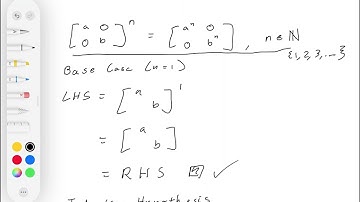 [a 0 0 b]^n = [a^n 0 0 b^n], n ∈ ℕ
{1, 2, 3, ...}
Base Case (n=1)
LHS = [a b]^1
= [a b]
= RHS ☑ ✓
Hypothesis